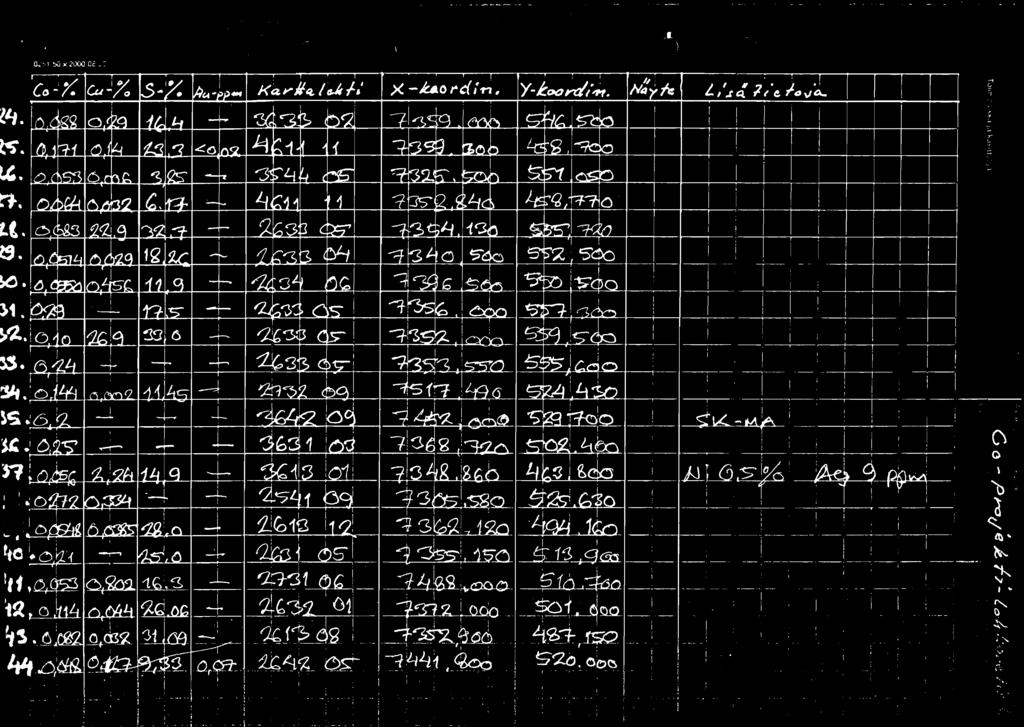 Co-% Cu-% S-% Au-ppm Karttalehti X-koordin. Y-koordin. Näyte Lisätietoja
24. 0,088 0,29 16,4 — 3633 02 7359,000 546,500
25. 0,171 0,14 23,3 <0,02 4611 11 7359,300 458,700
26. 0,053 0,006 3,85 — 3544 05 7325,500 551,050
27. 0,064 0,032 6,17 — 4611 11 7358,840 458,770
28. 0,083 22,9 32,7 — 2633 05 7354,130 555,720
29. 0,0514 0,029 18,26 — 2633 04 7340,500 552,500
30. 0,0550 0,456 11,9 — 2634 06 7396,500 550,500
31. 0,29 — 17,5 — 2633 05 7356,000 557,300
32. 0,10 26,9 33,0 — 2633 05 7352,000 559,500
33. 0,24 — — — 2633 05 7353,550 555,600
34. 0,144 0,002 11,45 — 2732 09 7517,490 524,430
35. 0,2 — — — 3642 09 7452,000 529,700 SK-MA
36. 0,25 — — — 3631 03 7368,720 502,400
37 0,056 2,24 14,9 — 3613 01 7348,860 463,800 Ni 0,5% Ag 9 ppm
0,272 0,334 — — 2541 09 7305,580 525,630
0,0548 0,0385 28,0 — 2613 12 7362,120 494,160
40. 0,21 — 25,0 — 2631 05 7355,150 513,900
41. 0,053 0,802 16,3 — 2731 06 7488,000 510,700
42. 0,114 0,044 26,06 — 2632 01 7372,000 501,000
43. 0,082 0,032 31,09 — 2613 08 7352,900 487,150
44. 0,048 0,127 9,33 0,07 2642 05 7441,800 520,000
Co-projekti-